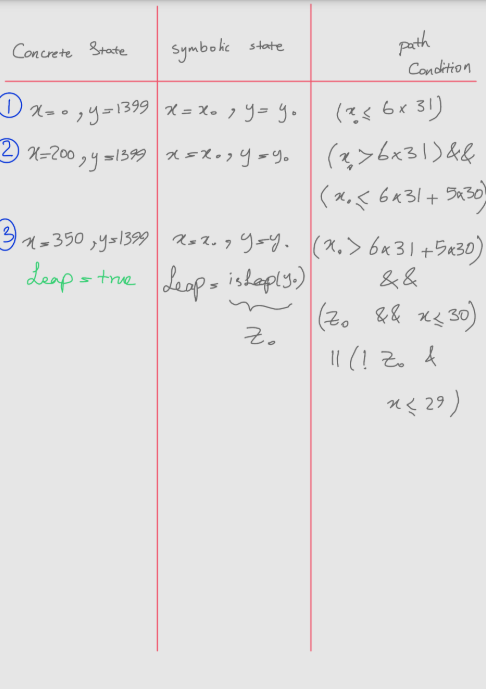 Concrete State symbolic state path Condition
① x=0, y=1399 x=x₀, y=y₀ (x₀ ≤ 6×31)
② x=200, y=1399 x=x₀, y=y₀ (x₀ >6×31) &&
(x₀ ≤ 6×31 + 5×30)
③ x=350, y=1399 x=x₀, y=y₀ (x₀ > 6×31 +5×30)
Leap = true Leap = isLeap(y₀) &&
Z₀ (Z₀ && x≤30)
|| (! Z₀ &
x ≤ 29)